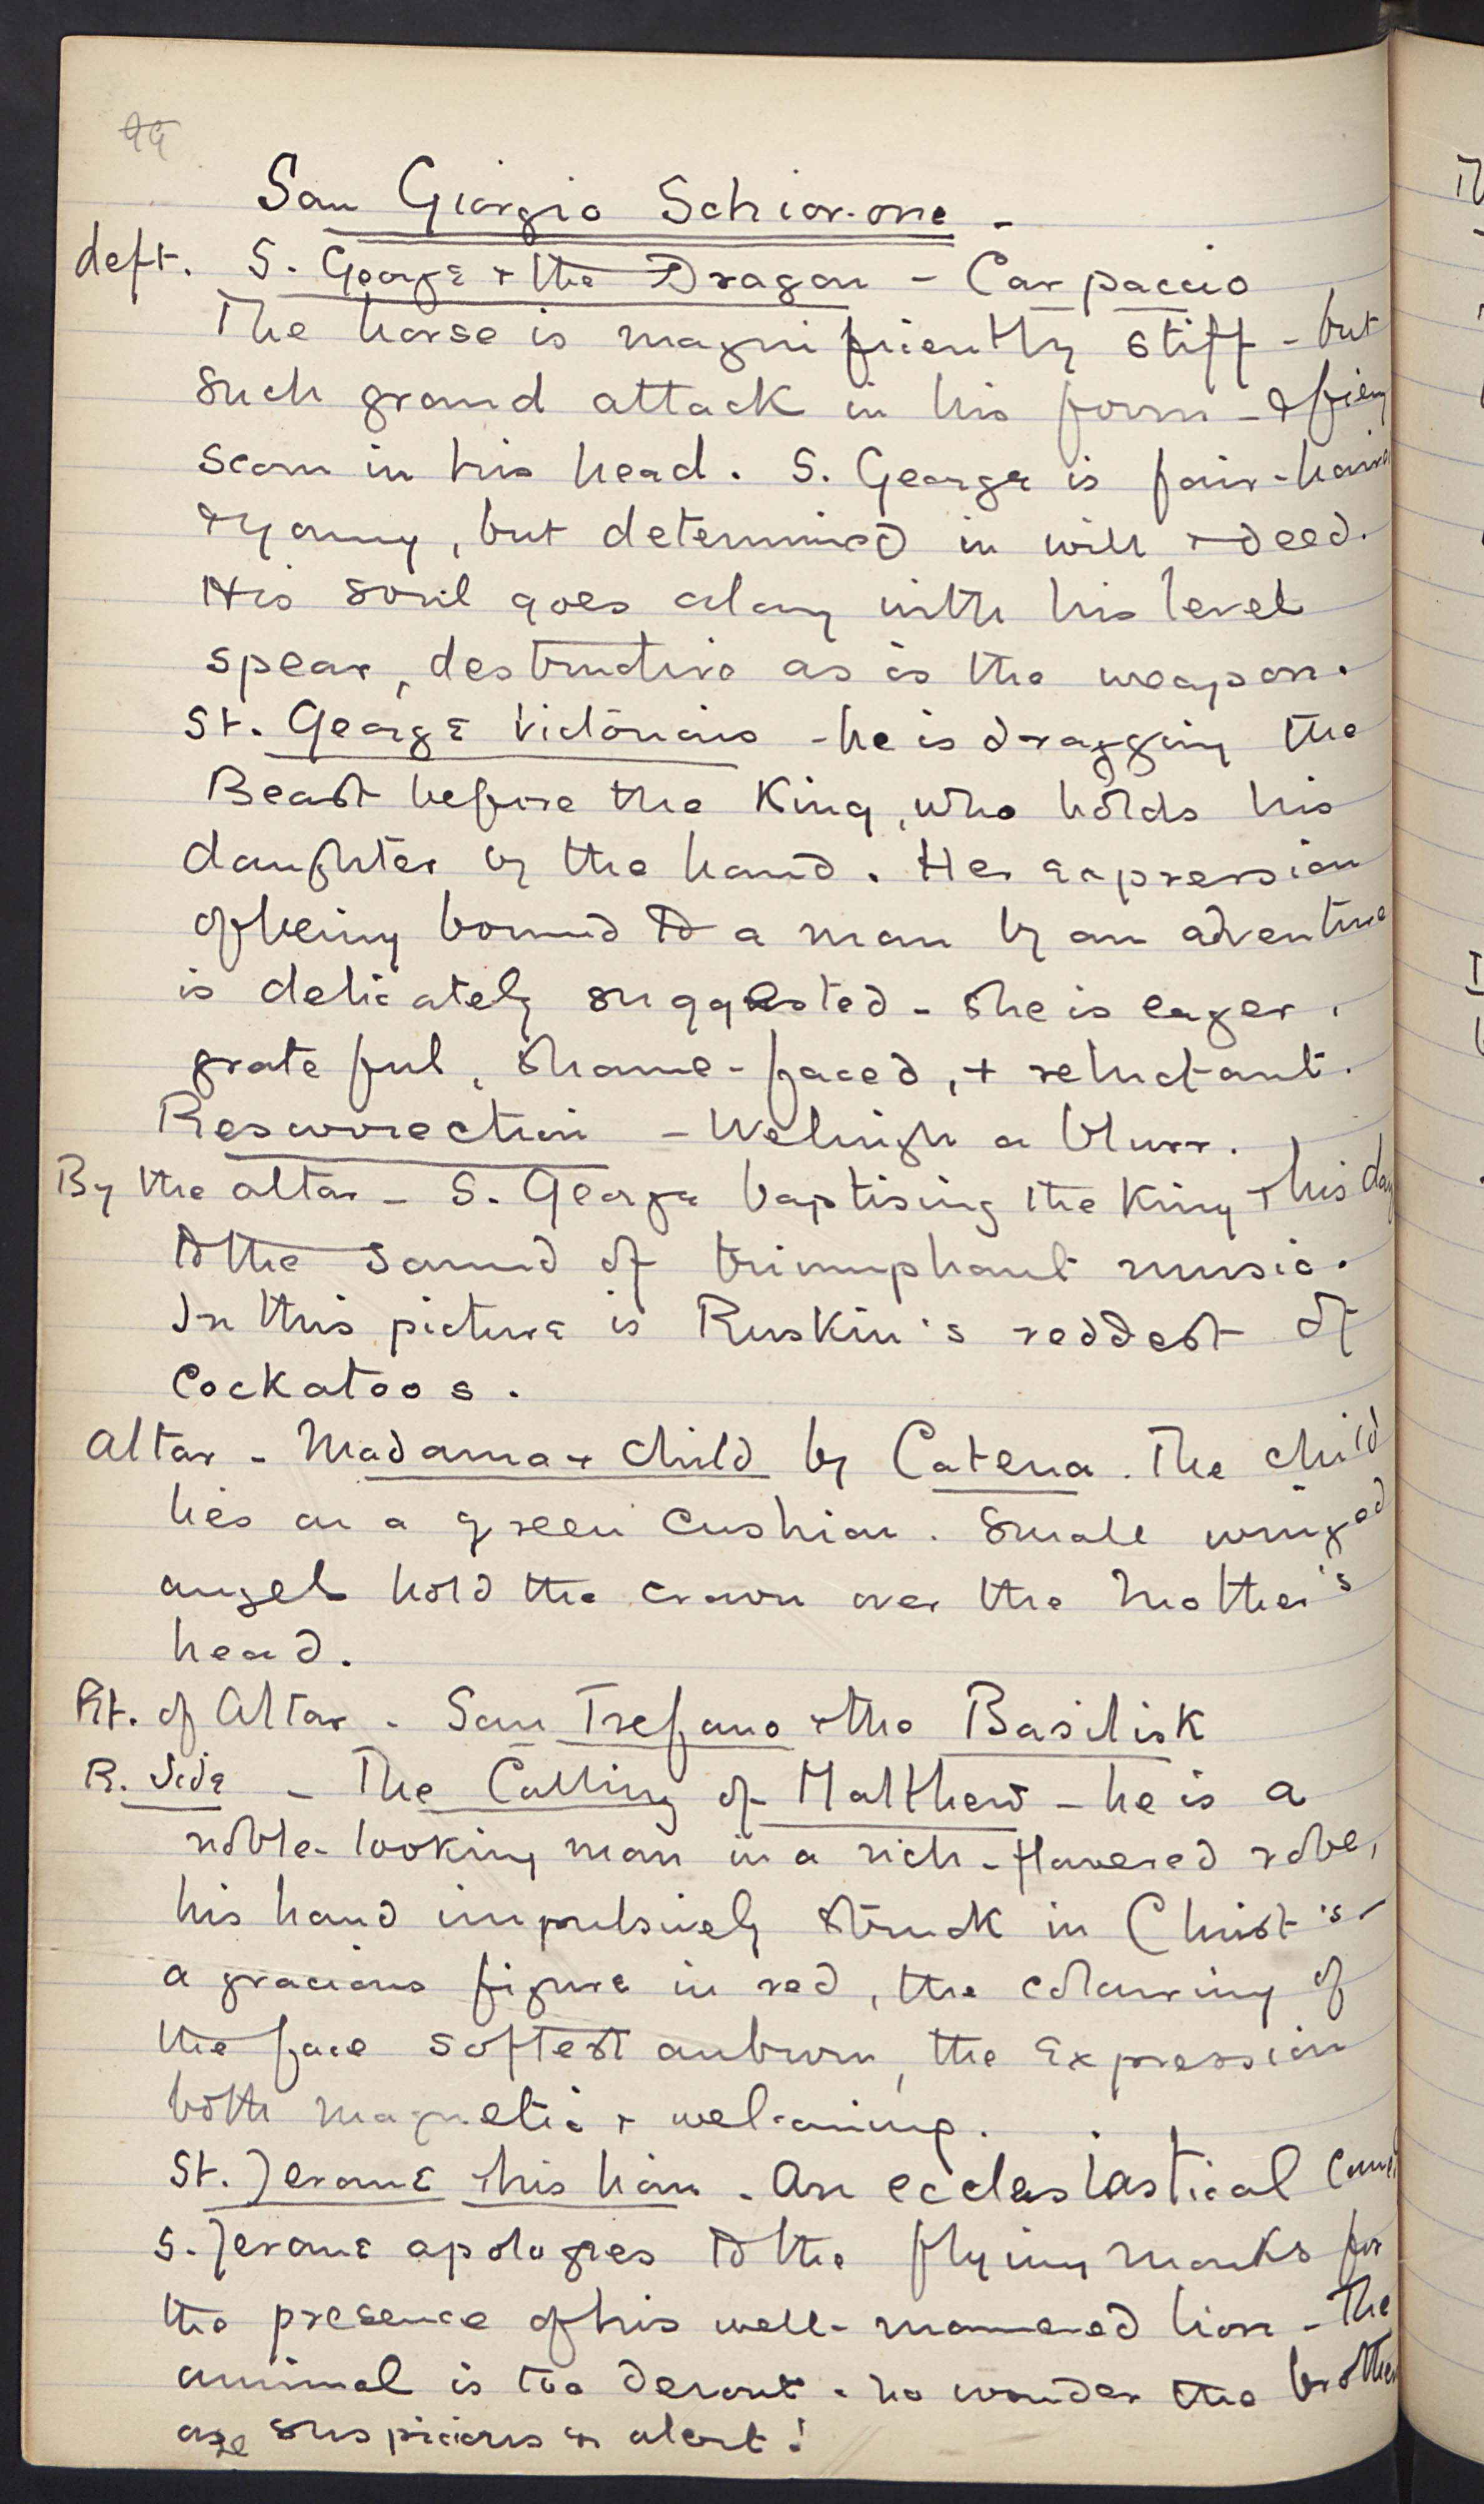 99
San Giorgio Schiavone -
Left. S. George + the Dragon - Carpaccio
The horse is magnificently stiff - but
such grand attack in his form - & fiery
scorn in his head. S. George is fair-haired
& young, but determined in will & deed.
His soul goes along with his level
spear, destructive as is the weapon.
St. George Victorious - he is dragging the
Beast before the King, who holds his
daughter by the hand. Her expression
of being bound to a man by an adventure
is delicately suggested - she is eager,
grateful, shame-faced, + reluctant.
Resurrection - Welnigh a blurr.
By the altar - S. George baptising the King & his
to the sound of triumphant music.
In this picture is Ruskin's reddest of
Cockatoos.
Altar - Madonna & Child by Catena. The child
lies on a green cushion. Small winged
angels hold the crown over the Mother's
head.
Rt. of Altar - San Trefano & the Basilisk
R. Side - The Calling of Matthew - he is a
noble-looking man in a rich-flowered robe,
his hand impulsively struck in Christ's -
a gracious figure in red, the colouring of
the face softest auburn, the expression
both magnetic & welcoming.
St. Jerome & his lion. An ecclesiastical
S. Jerome apologies to the flying monks for
the presence of his well-mannered lion - The
animal is too devout - no wonder the
are suspicious & alert!